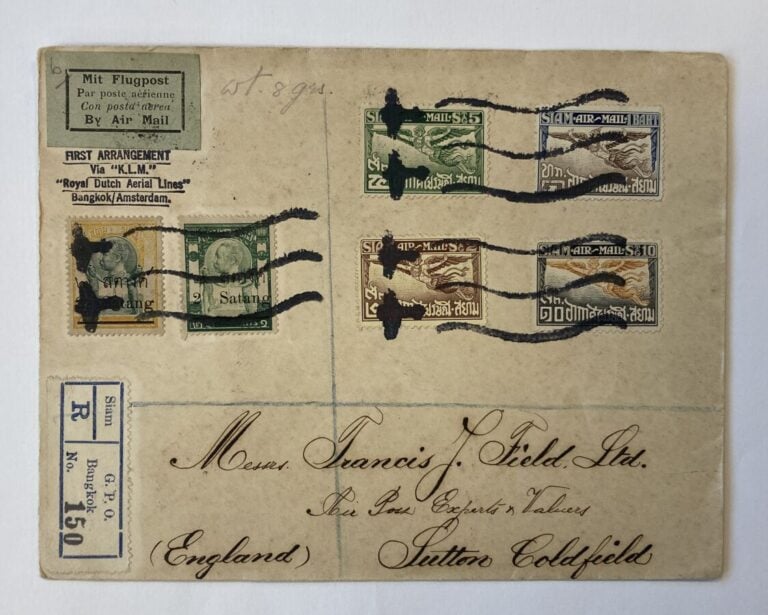 Mit Flugpost
Par poste aérienne
Con posta aerea
By Air Mail
wt. 8 grs.
FIRST ARRANGEMENT
Via "K.L.M."
"Royal Dutch Aerial Lines"
Bangkok/Amsterdam.
SIAM-AIR-MAIL-5
SIAM-AIR-MAIL-1 BAHT
สยาม
สยาม
SIAM-AIR-MAIL 2
SIAM-AIR-MAIL 10
สยาม
๑๐
สยาม
2 Satang
Siam
R
G. P. O.
Bangkok
No. 150
Messrs. Francis J. Field, Ltd.
Air Post Experts & Valuers
(England) Sutton Coldfield